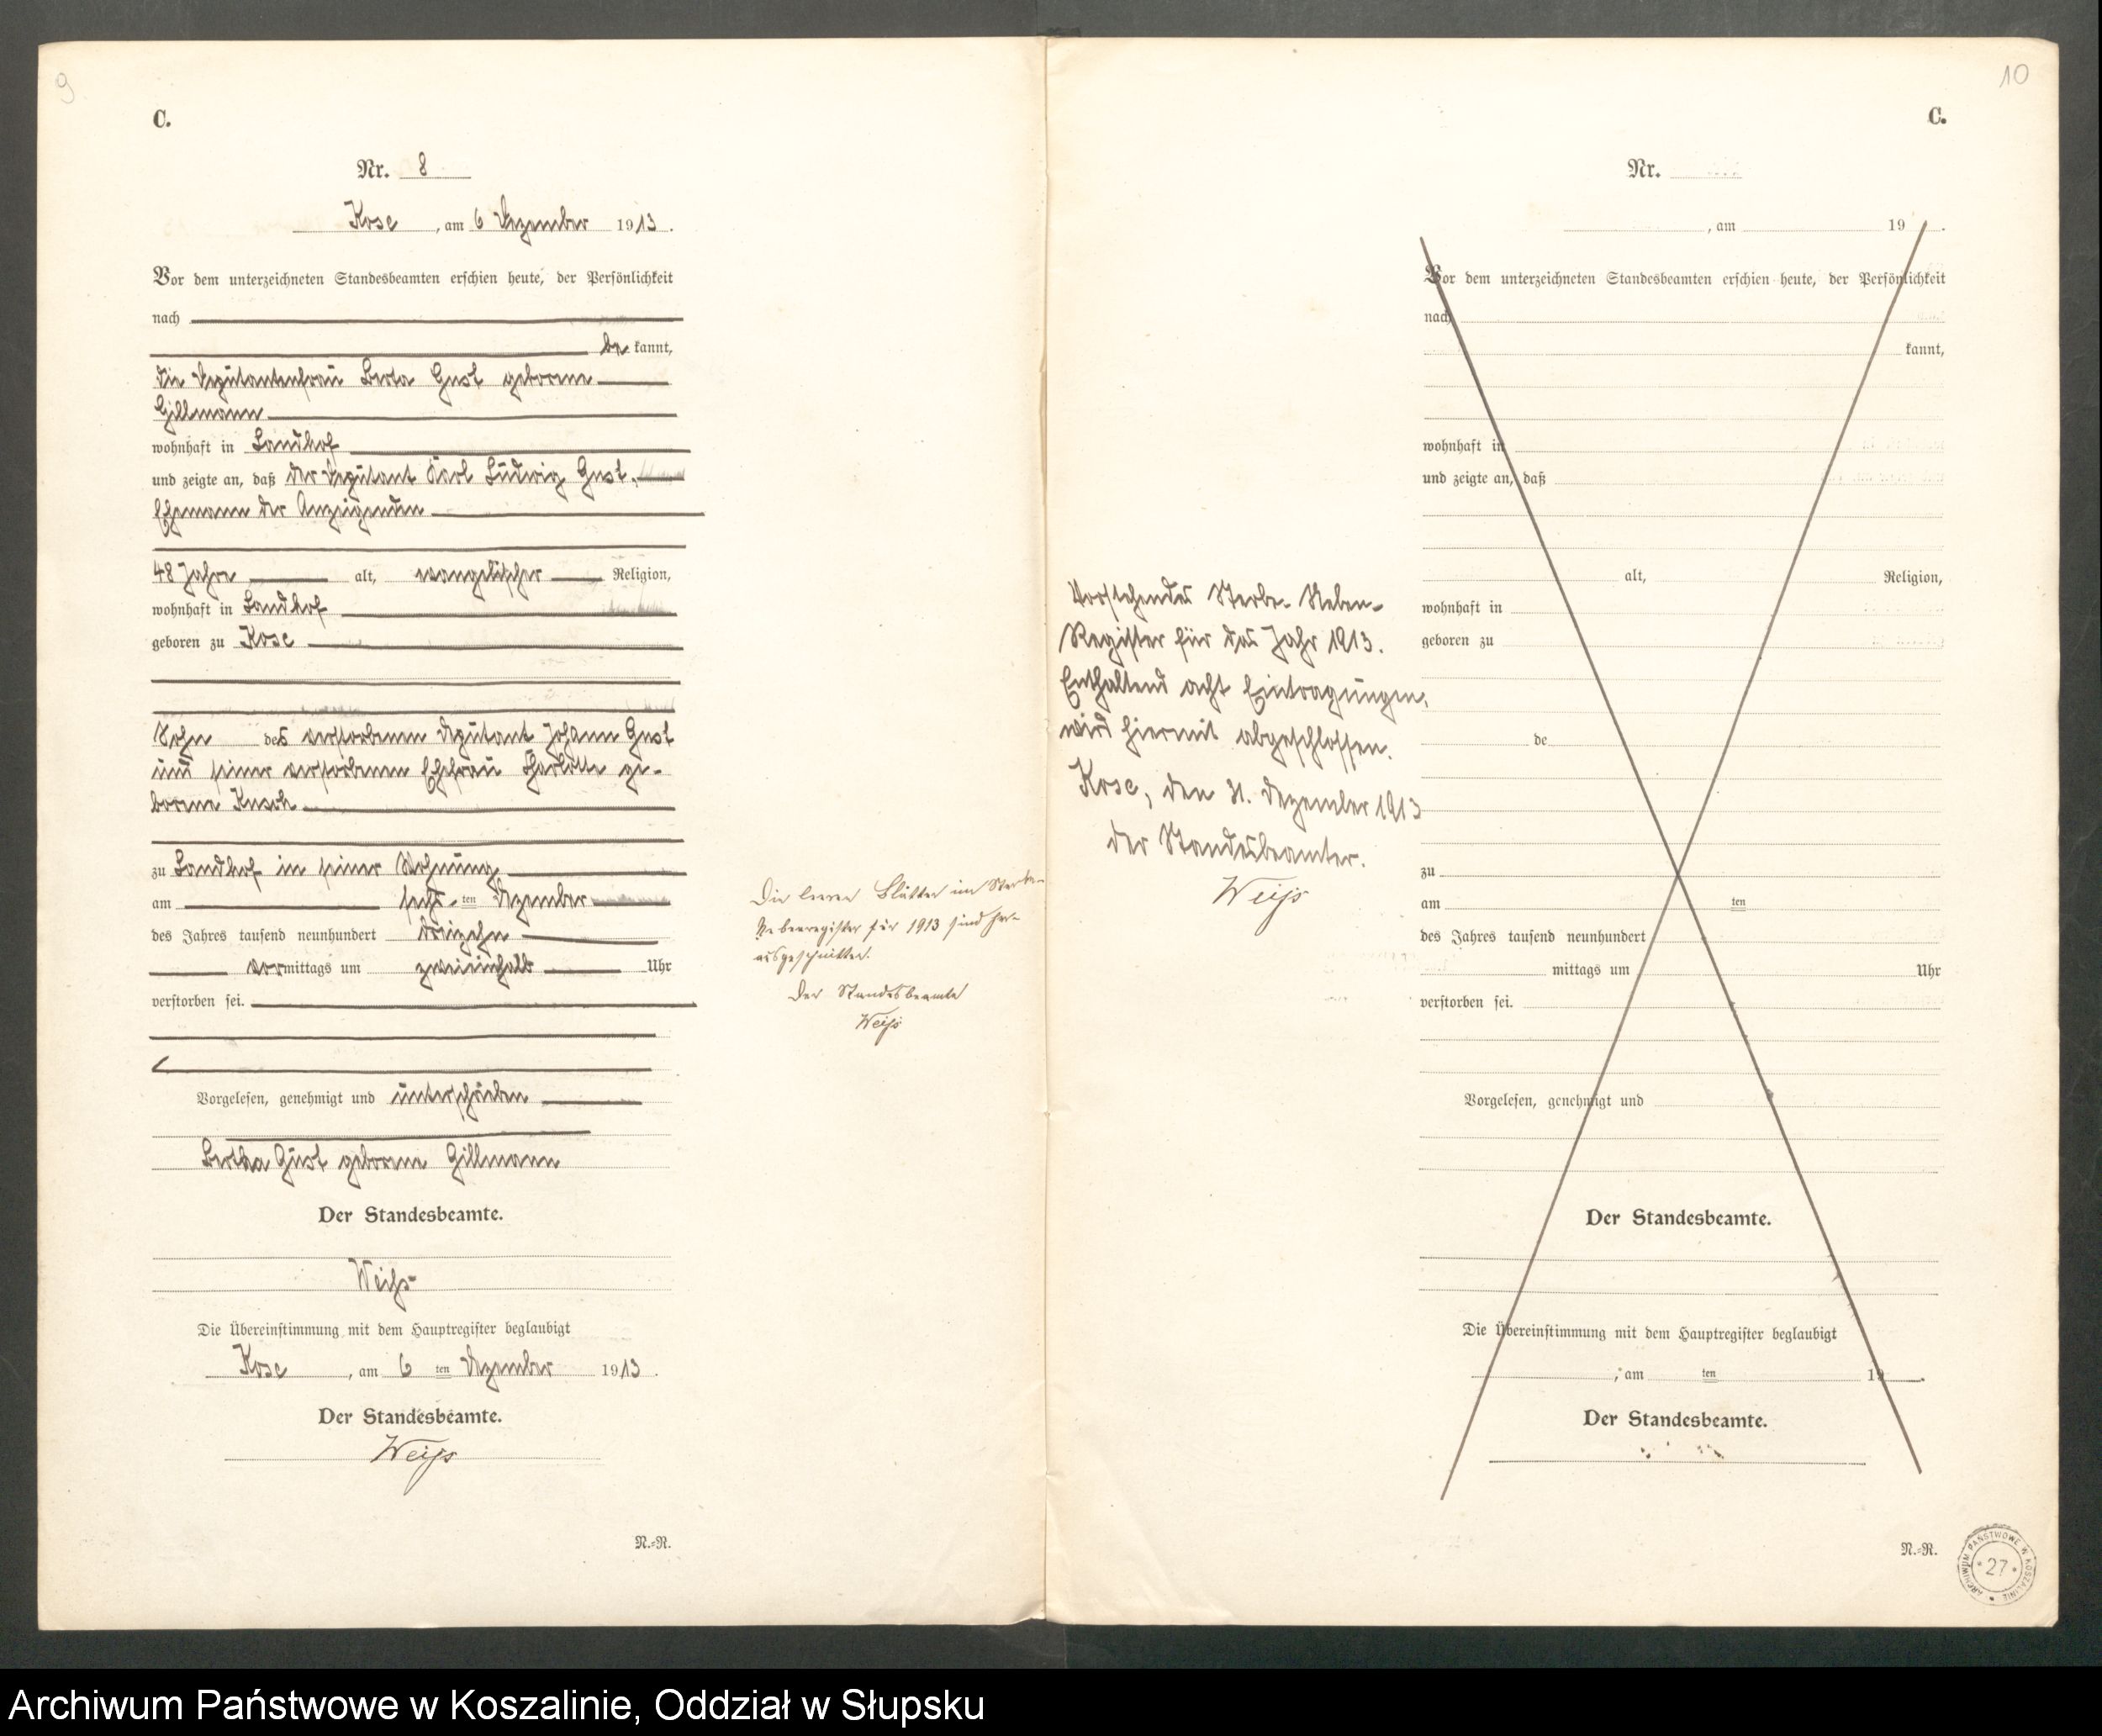 9
C.
Nr. 8
Kose, am 6 Dezember 1913.
Vor dem unterzeichneten Standesbeamten erschien heute, der Persönlichkeit
nach
be kannt,
die Deputantenfrau Berta Gust geborene
Gillmann
wohnhaft in Sandhof
und zeigte an, daß der Deputant Karl Ludwig Gust,
Ehemann der Anzeigenden
48 Jahre alt, evangelischer Religion,
wohnhaft in Sandhof
geboren zu Kose
Sohn des verstorbenen Deputant Johann Gust
und seiner verstorbenen Ehefrau Charlotte ge-
borene
zu Sandhof in seiner Wohnung
am sechs-ten Dezember
des Jahres tausend neunhundert dreizehn
vormittags um zweieinhalb Uhr
verstorben sei.
Vorgelesen, genehmigt und unterschrieben
Bertha Gust geborene Gillmann
Der Standesbeamte.
Weiß
Die Übereinstimmung mit dem Hauptregister beglaubigt
Kose, am 6 ten Dezember 1913.
Der Standesbeamte.
Weiß
N.=R.
Die leeren Blätter im Sterbe-
Nebenregister für 1913 sind her-
ausgeschnitten.
Der Standesbeamte
Weiß
10
C.
Vorstehendes Sterbe-Neben-
Register für das Jahr 1913.
Enthaltend acht Eintragungen,
wird hiermit abgeschlossen.
Kose, den 31. Dezember 1913
der Standesbeamter.
Weiß
Nr.
, am 19 .
Vor dem unterzeichneten Standesbeamten erschien heute, der Persönlichkeit
nach
kannt,
wohnhaft in
und zeigte an, daß
alt, Religion,
wohnhaft in
geboren zu
de
zu
am ten
des Jahres tausend neunhundert
mittags um Uhr
verstorben sei.
Vorgelesen, genehmigt und
Der Standesbeamte.
Die Übereinstimmung mit dem Hauptregister beglaubigt
, am ten 19 .
Der Standesbeamte.
N.=R.
ARCHIWUM PAŃSTWOWE W KOSZALINIE
* 27 *
Archiwum Państwowe w Koszalinie, Oddział w Słupsku